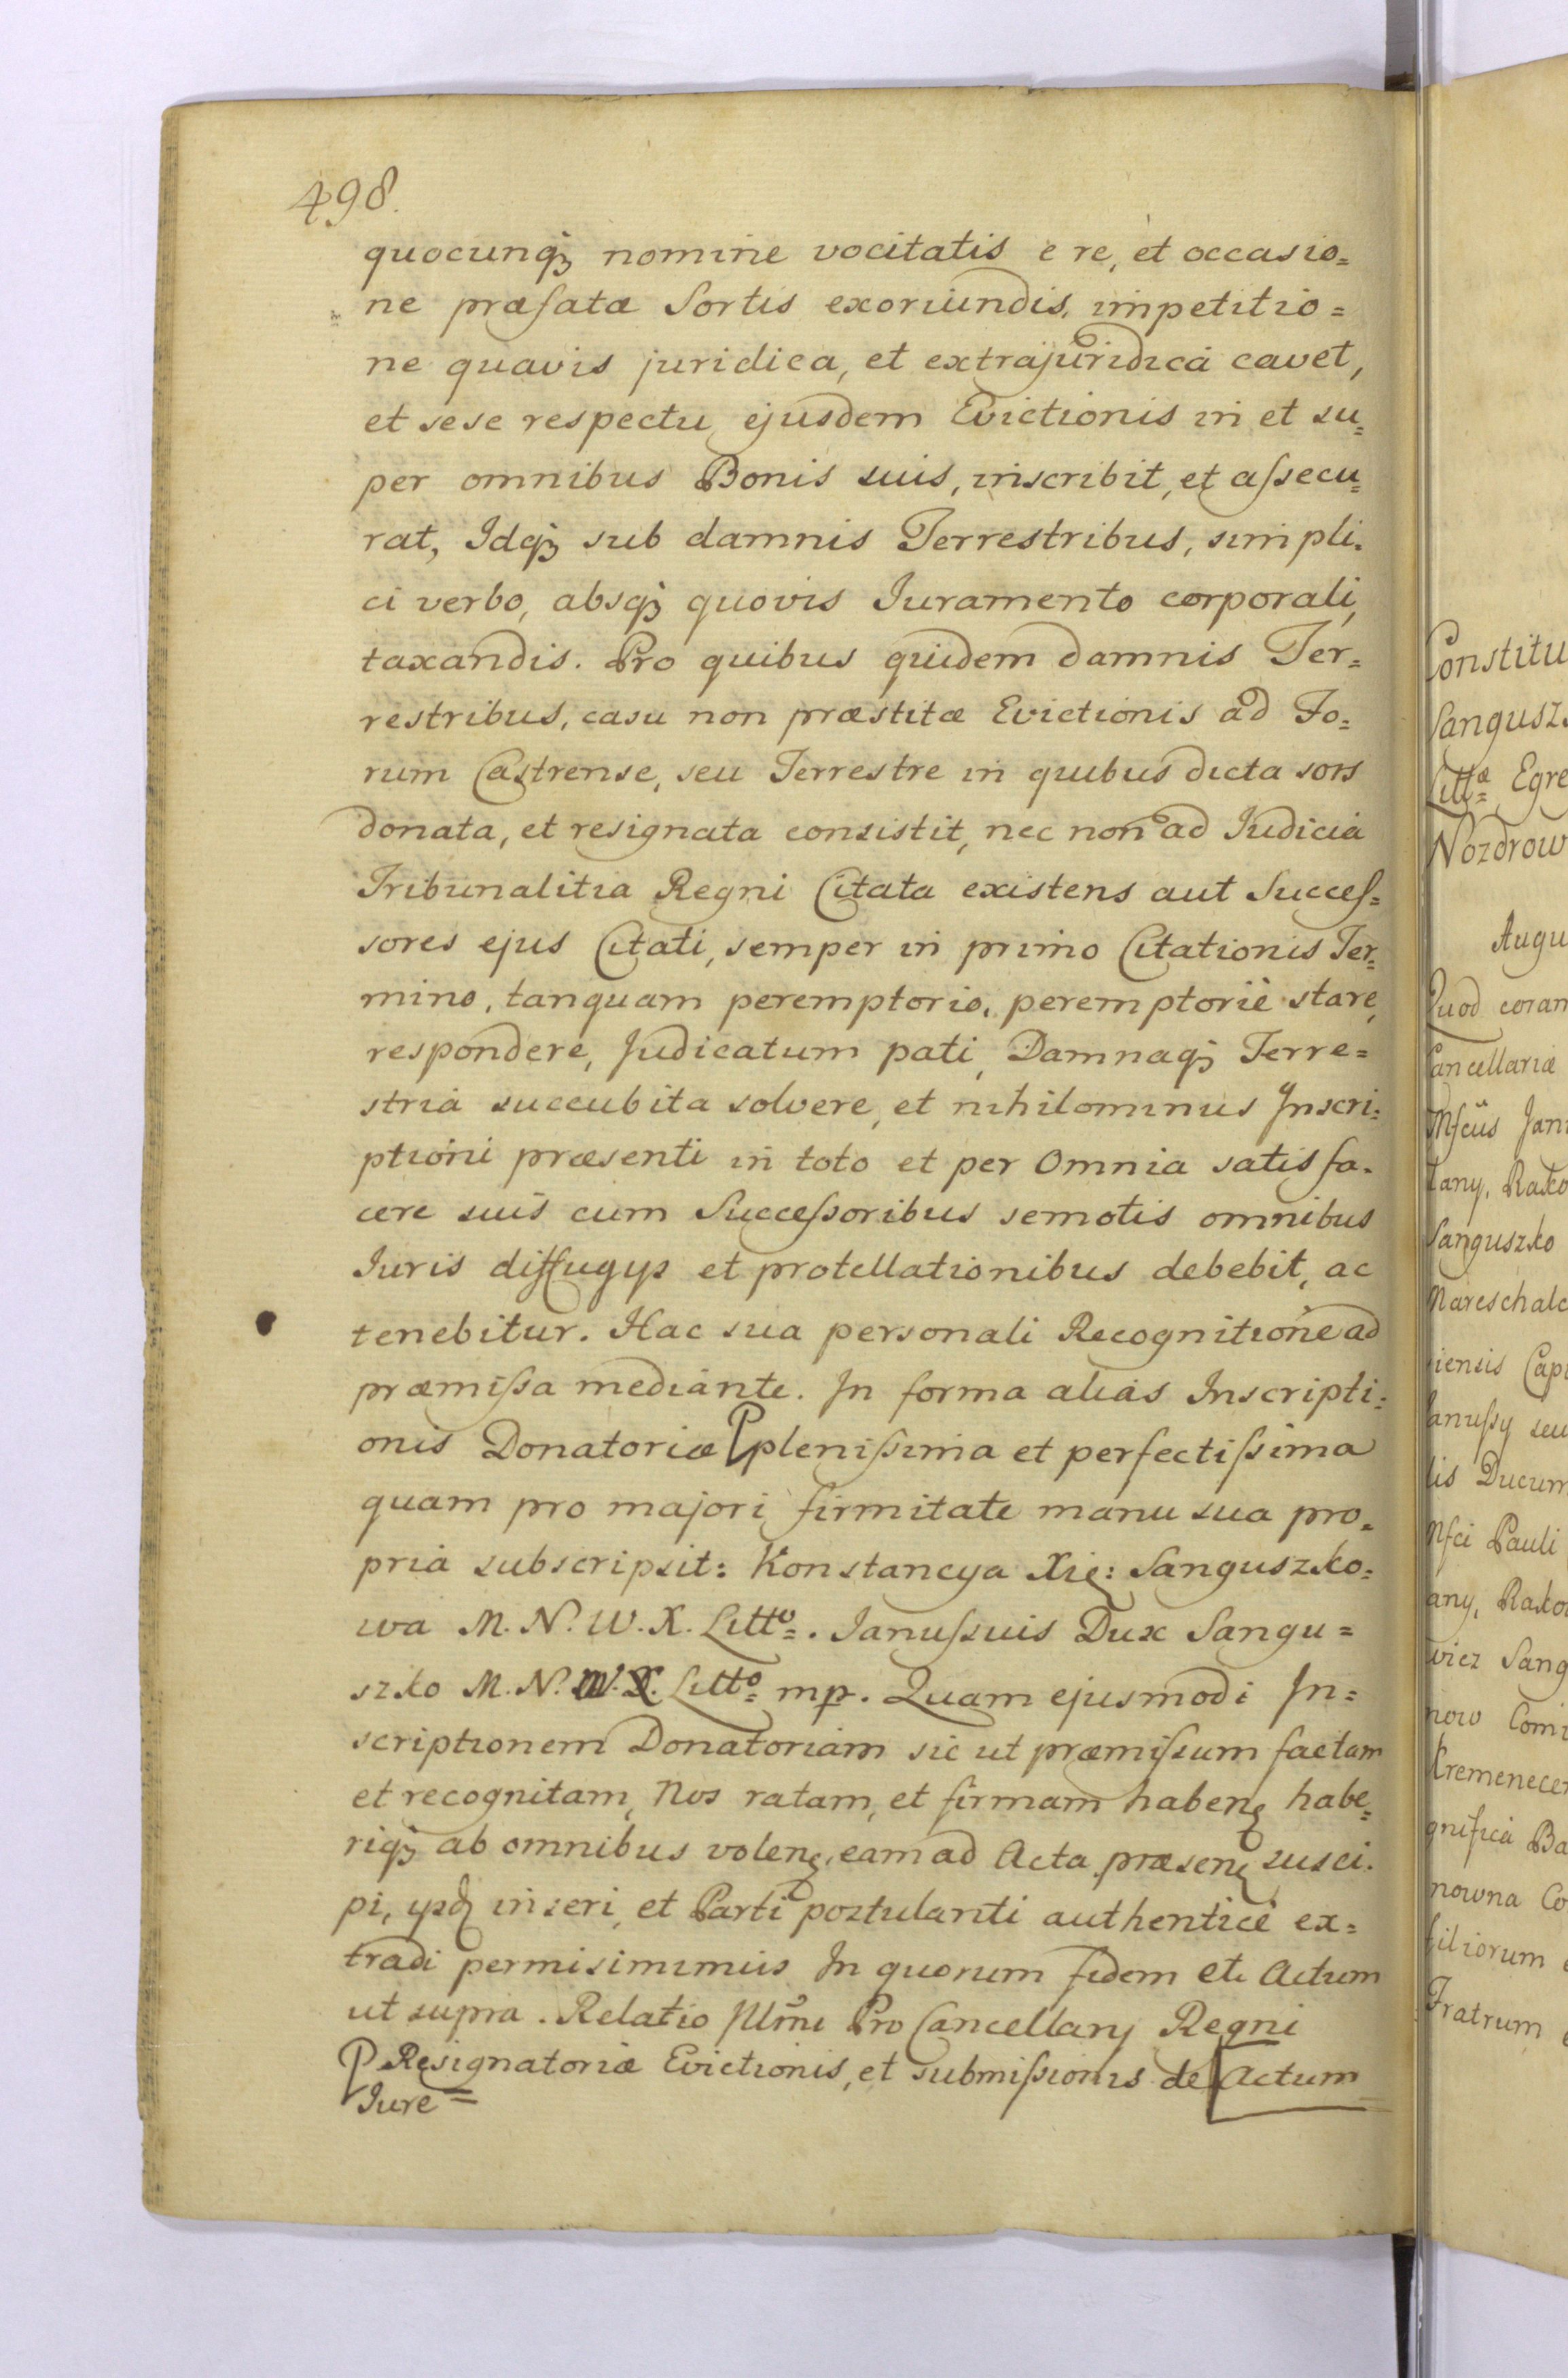 498.
quocunq̃ nomine vocitatis e re, et occasio=
ne præfatæ Sortis exoriundis, impetitio=
ne quavis juridica, et extrajuridica cavet,
et sese respectu ejusdem Evictionis in et su=
per omnibus Bonis suis, inscribit, et aſsecu=
rat, Idq̃ sub damnis Terrestribus, simpli=
ci verbo, absq̃ quovis Iuramento corporali,
taxandis. Pro quibus quidem damnis Ter=
restribus, casu non præstitæ Evictionis ad Fo=
rum Castrense, seu Terrestre in quibus dicta sors
donata, et resignata consistit, nec non ad Iudicia
Tribunalitia Regni Citata existens aut Succeſ=
sores ejus Citati, semper in primo Citationis Ter=
mino, tanquam peremptorio, peremptorie stare,
respondere, Judicatum pati, Damnaq̃ Terre=
stria succubita solvere, et nihilominus Inscri=
ptioni præsenti in toto et per Omnia satisfa=
cere suis cum Succeſsoribus semotis omnibus
Iuris diffugys et protellationibus debebit, ac
tenebitur. Hac sua personali Recognitione ad
præmiſsa mediante. In forma alias Inscripti=
onis Donatoriæ P pleniſsima et perfectiſsima
quam pro majori firmitate manu sua pro=
pria subscripsit: Konstancya Xię: Sanguszko=
wa M. N. W. X. Litt͟o. Ianuſsuis Dux Sangu=
szko M. N. W. X. Litt͟o mp. Quam ejusmodi In=
scriptionem Donatoriam sic ut præmiſsum factam
et recognitam, Nos ratam, et firmam habenȩ habe=
riq̃ ab omnibus volenȩ, eam ad Acta præsenȩ susci=
pi, ysq̃ inseri, et Parti postulanti authentice ex=
tradi permisimimus In quorum fidem etc Actum
ut supra. Relatio Illm̃i Pro Cancellary Regni
P Resignatoriæ Evictionis, et submiſsionis de Actum
Iure=
Constitu
Sangusz
Littæ Egre
Nozdrow
Augu
Quod coram
Cancellariæ
Mſcūs Jan
tany, Rako
Sanguszko
Mareschalc
iensis Cap
Januſsy seu
lis Ducum
Mſci Pauli
any, Rako
wicz Sang
now Comi
Kremenecen
gnifica Ba
nowna Co
filiorum
Fratrum